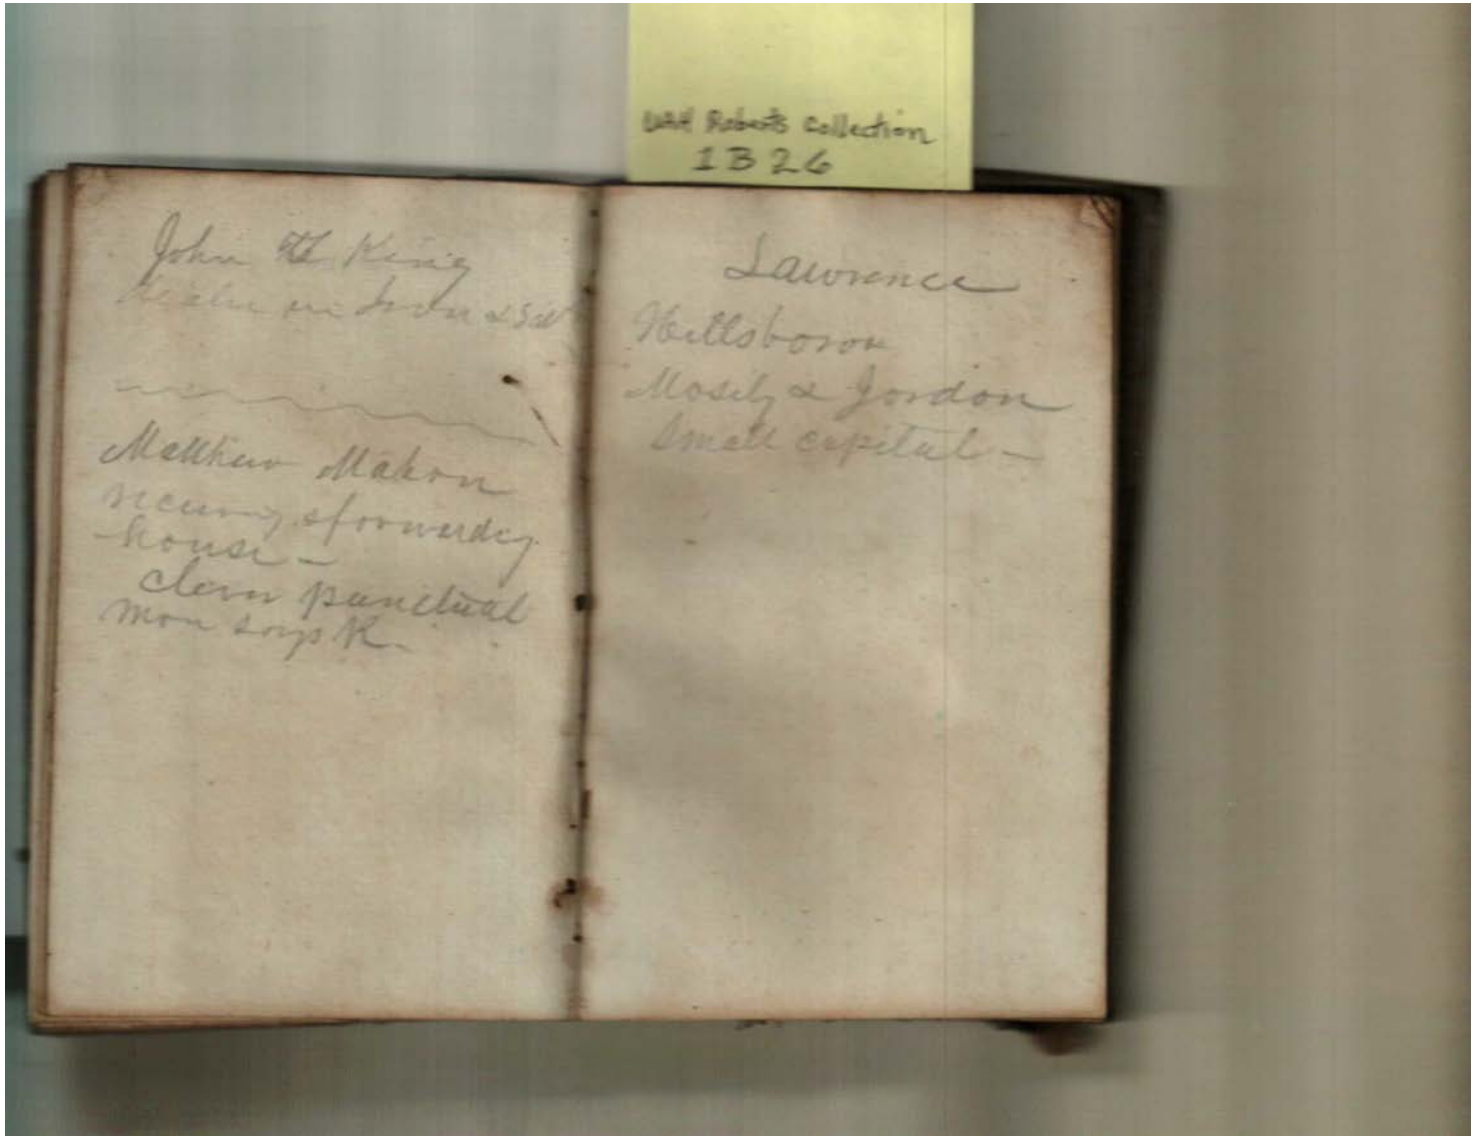 UAH Roberts Collection
1 B 26
John King
Dealer in Iron & Salt
Matthew Mahon
receiving & forwarding
house –
clever punctual
man says R.
Lawrence
Hillsboro
Mosely & Jordon
Small capital –